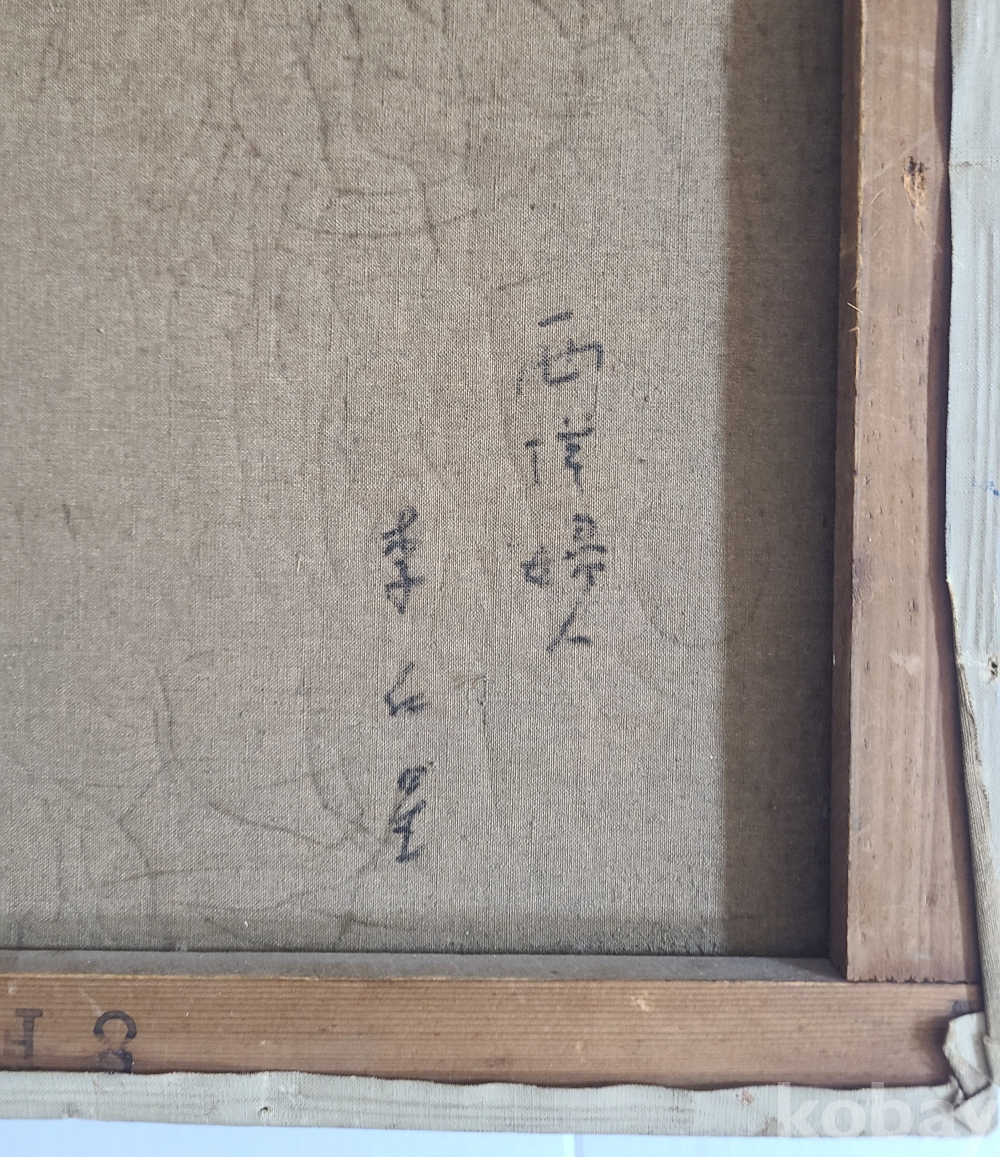 西洋婦人
李仁星
kobay